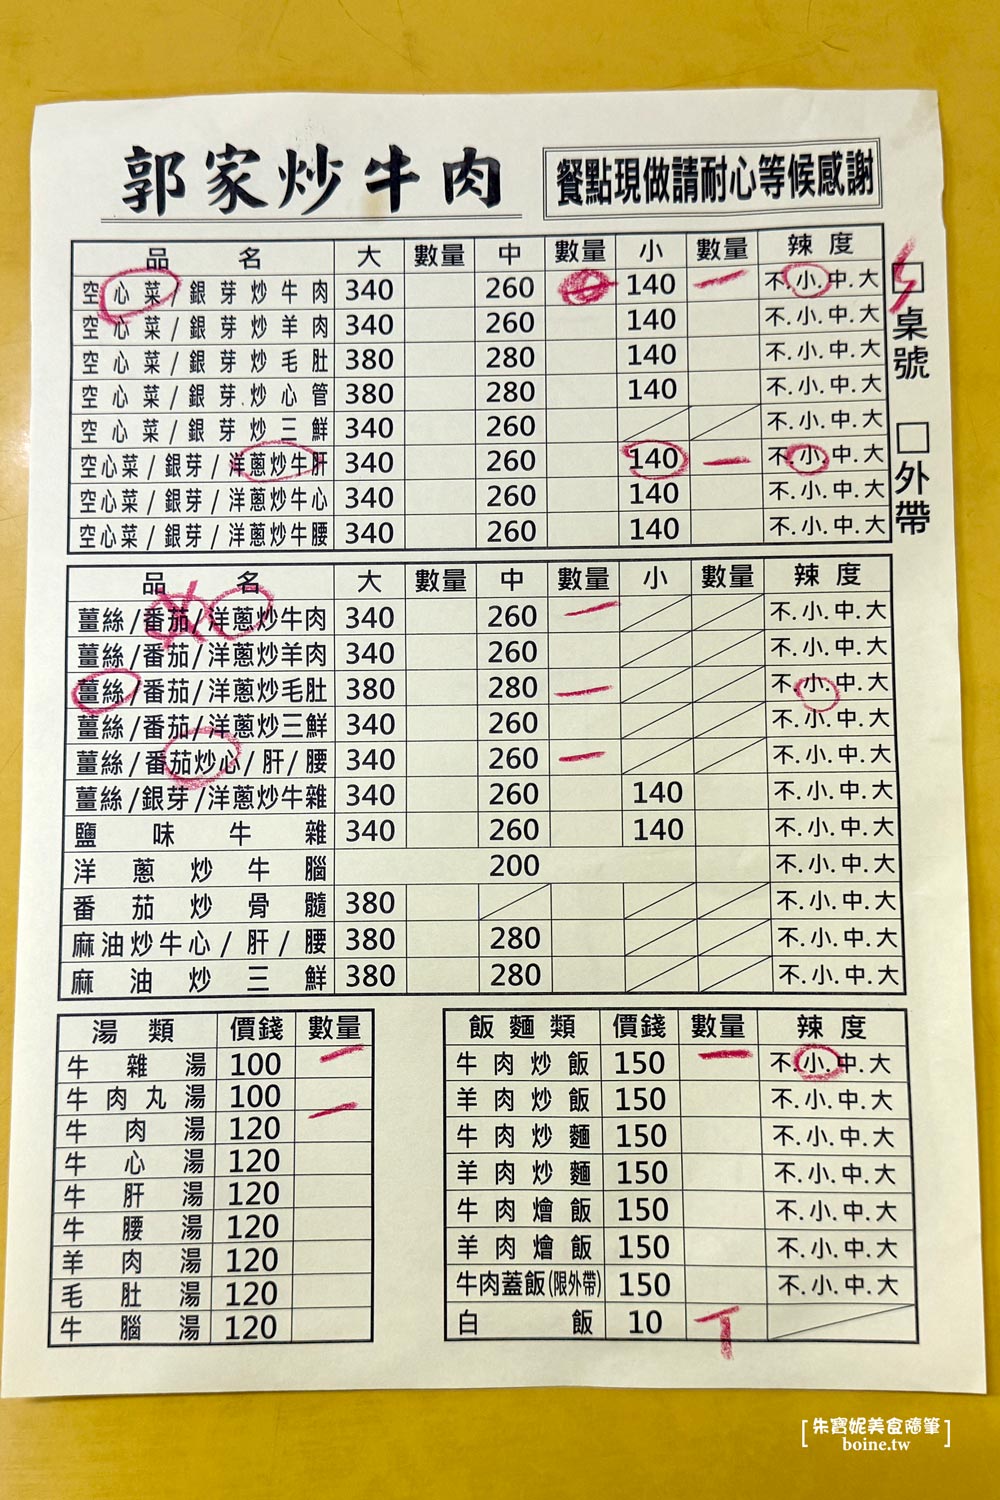 郭家炒牛肉 餐點現做請耐心等候感謝
品名 大 數量 中 數量 小 數量 辣度
空心菜/銀芽炒牛肉 340 260 140 一 不.小.中.大
空心菜/銀芽炒羊肉 340 260 140 不.小.中.大
空心菜/銀芽炒毛肚 380 280 140 不.小.中.大
空心菜/銀芽炒心管 380 280 140 不.小.中.大
空心菜/銀芽炒三鮮 340 260 不.小.中.大
空心菜/銀芽/洋蔥炒牛肝 340 260 140 一 不.小.中.大
空心菜/銀芽/洋蔥炒牛心 340 260 140 不.小.中.大
空心菜/銀芽/洋蔥炒牛腰 340 260 140 不.小.中.大
□桌號
□外帶
品名 大 數量 中 數量 小 數量 辣度
薑絲/番茄/洋蔥炒牛肉 340 260 一 不.小.中.大
薑絲/番茄/洋蔥炒羊肉 340 260 不.小.中.大
薑絲/番茄/洋蔥炒毛肚 380 280 一 不.小.中.大
薑絲/番茄/洋蔥炒三鮮 340 260 不.小.中.大
薑絲/番茄炒心/肝/腰 340 260 一 不.小.中.大
薑絲/銀芽/洋蔥炒牛雜 340 260 140 不.小.中.大
鹽味牛雜 340 260 140 不.小.中.大
洋蔥炒牛腦 200 不.小.中.大
番茄炒骨髓 380 不.小.中.大
麻油炒牛心/肝/腰 380 280 不.小.中.大
麻油炒三鮮 380 280 不.小.中.大
湯類 價錢 數量
牛雜湯 100 一
牛肉丸湯 100
牛肉湯 120 一
牛心湯 120
牛肝湯 120
牛腰湯 120
羊肉湯 120
毛肚湯 120
牛腦湯 120
飯麵類 價錢 數量 辣度
牛肉炒飯 150 一 不.小.中.大
羊肉炒飯 150 不.小.中.大
牛肉炒麵 150 不.小.中.大
羊肉炒麵 150 不.小.中.大
牛肉燴飯 150 不.小.中.大
羊肉燴飯 150 不.小.中.大
牛肉蓋飯(限外帶) 150 不.小.中.大
白飯 10
[朱寶妮美食隨筆]
boine.tw